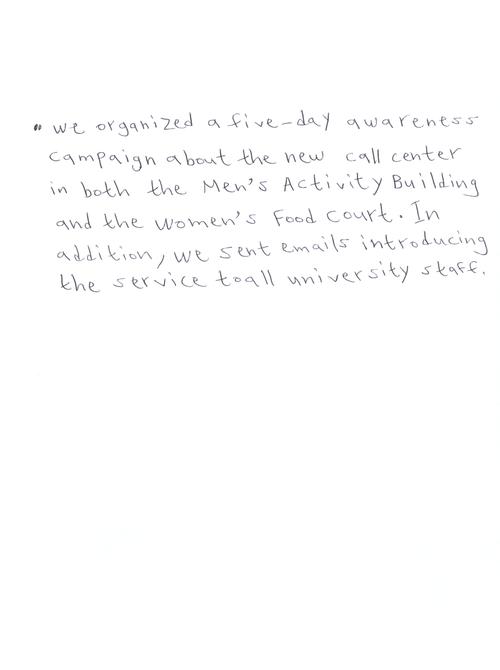 " we organized a five-day awareness
campaign about the new call center
in both the Men's Activity Building
and the women's Food court. In
addition, we sent emails introducing
the service toall university staff.